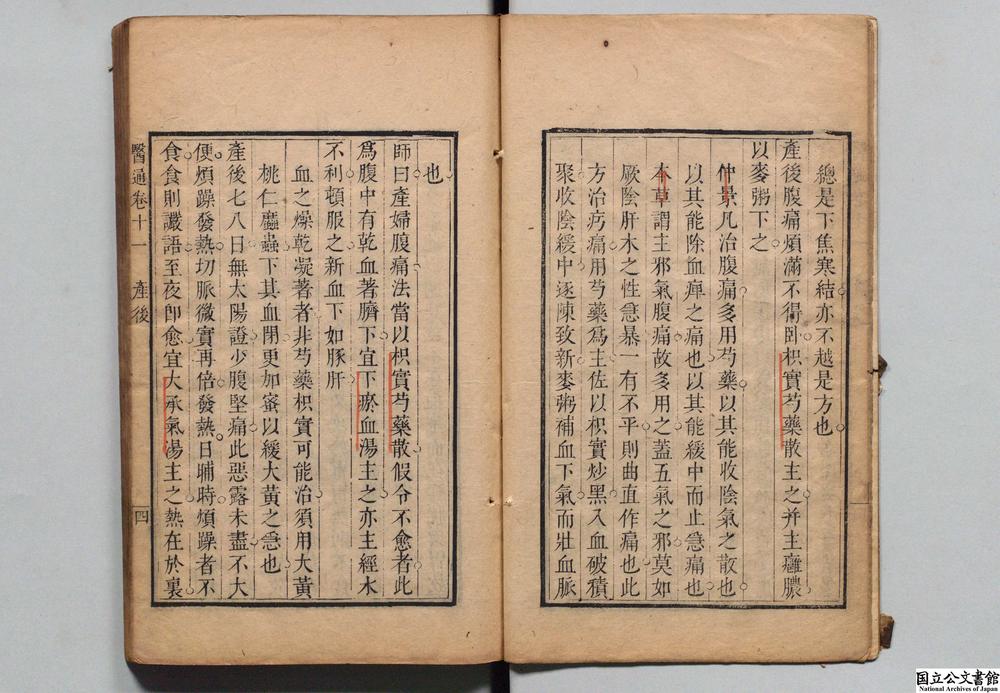 總是下焦寒結亦不越是方也
產後腹痛煩滿不得臥枳實芍藥散主之并主癰膿
以麥粥下之
仲景凡治腹痛多用芍藥以其能收陰氣之散也
以其能除血痺之痛也以其能緩中而止急痛也
本草謂主邪氣腹痛故多用之蓋五氣之邪莫如
厥陰肝木之性急暴一有不平則曲直作痛也此
方治疠痛用芍藥爲主佐以枳實炒黑入血破積
聚收陰緩中逐陳致新麥粥補血下氣而壯血脈
也
師曰產婦腹痛法當以枳實芍藥散假令不愈者此
爲腹中有乾血著臍下宜下瘀血湯主之亦主經水
不利頓服之新血下如豚肝
血之燥乾凝著者非芍藥枳實可能治須用大黃
桃仁䗪蟲下其血閉更加蜜以緩大黃之急也
產後七八日無太陽證少腹堅痛此惡露未盡不大
便煩躁發熱切脈微實再倍發熱日晡時煩躁者不
食食則讝語至夜卽愈宜大承氣湯主之熱在於裏
醫通卷十一 產後 四
国立公文書館
National Archives of Japan